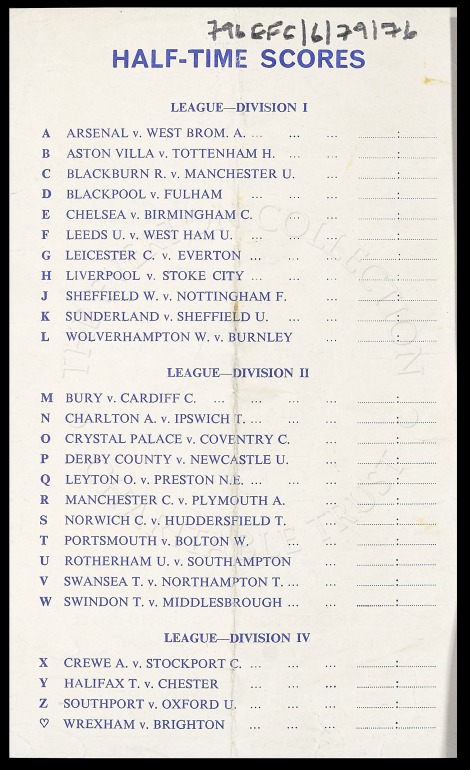 796 EFC/6/79/76
HALF-TIME SCORES
LEAGUE—DIVISION I
A ARSENAL v. WEST BROM. A. ... ... ... ............:............
B ASTON VILLA v. TOTTENHAM H. ... ... ............:............
C BLACKBURN R. v. MANCHESTER U. ... ............:............
D BLACKPOOL v. FULHAM ... ... ... ............:............
E CHELSEA v. BIRMINGHAM C. ... ... ............:............
F LEEDS U. v. WEST HAM U. ... ... ... ............:............
G LEICESTER C. v. EVERTON ... ... ... ............:............
H LIVERPOOL v. STOKE CITY ... ... ... ............:............
J SHEFFIELD W. v. NOTTINGHAM F. ... ............:............
K SUNDERLAND v. SHEFFIELD U. ... ... ............:............
L WOLVERHAMPTON W. v. BURNLEY ... ............:............
LEAGUE—DIVISION II
M BURY v. CARDIFF C. ... ... ... ... ............:............
N CHARLTON A. v. IPSWICH T. ... ... ... ............:............
O CRYSTAL PALACE v. COVENTRY C. ... ............:............
P DERBY COUNTY v. NEWCASTLE U. ... ............:............
Q LEYTON O. v. PRESTON N.E. ... ... ... ............:............
R MANCHESTER C. v. PLYMOUTH A. ... ............:............
S NORWICH C. v. HUDDERSFIELD T. ... ............:............
T PORTSMOUTH v. BOLTON W. ... ... ............:............
U ROTHERHAM U. v. SOUTHAMPTON ... ............:............
V SWANSEA T. v. NORTHAMPTON T. ... ... ............:............
W SWINDON T. v. MIDDLESBROUGH ... ... ............:............
LEAGUE—DIVISION IV
X CREWE A. v. STOCKPORT C. ... ... ... ............:............
Y HALIFAX T. v. CHESTER ... ... ... ............:............
Z SOUTHPORT v. OXFORD U. ... ... ... ............:............
♡ WREXHAM v. BRIGHTON ... ... ... ............:............